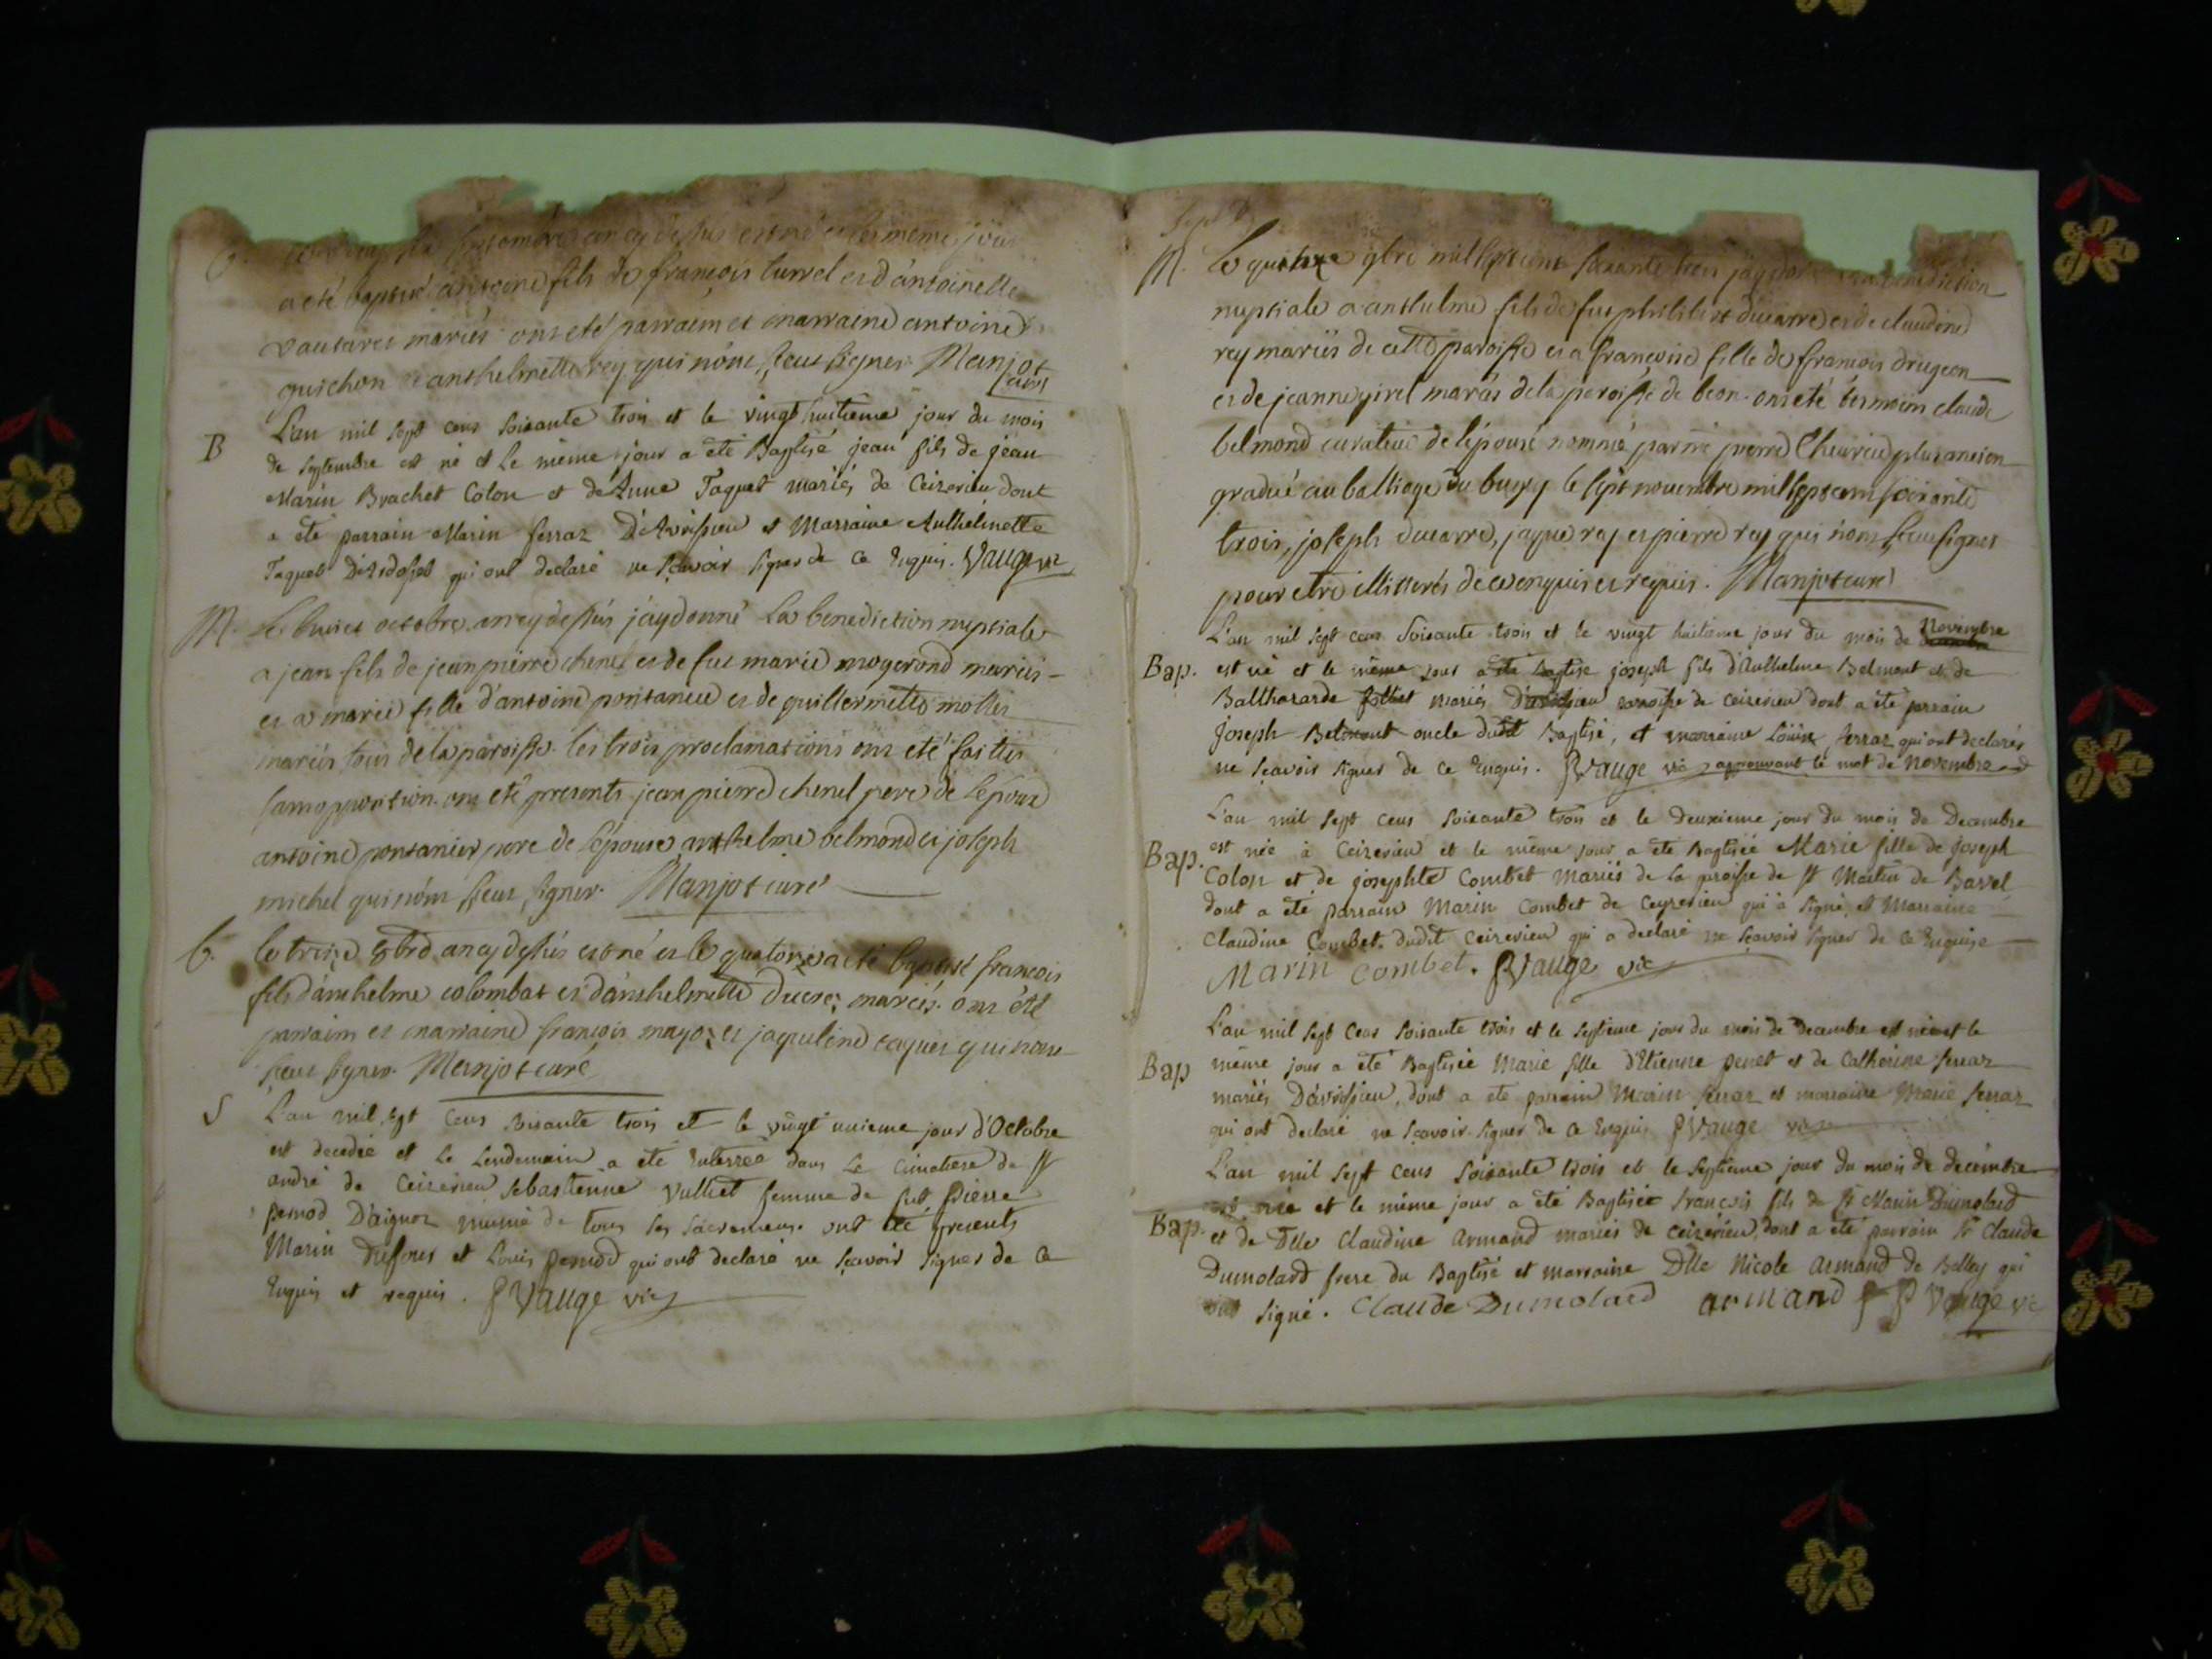 septembre an cy dessus est né et le meme jour
a eté baptisé antoine fils de françois turrel et d'antoinette
mariés ont eté parrain et marraine antoine
guichon et anthelmette rey qui n'ont sceus signer Manjot
curé
B
L'an mil sept cens soixante trois et le vingt huitieme jour du mois
de septembre est né et le même jour a été Baptisé jean fils de jean
Marin Brachet Colon et de Anne Taquet mariés de Ceizerieu dont
a été parrain Marin ferraz D'Avrissieu et Marraine Anthelmette
Taquet D'Ardosset qui ont declaré ne sçavoir signer de ce Enquis. Vauge vic
M. Le huict octobre an cy dessus j'ay donné la benediction nuptiale
a jean fils de jean pierre chenel et de fut marie mogerond mariés
et a marie fille d'antoine pontanier et de guillermette mollin
mariés tous de la paroisse. les trois proclamations ont eté faites
sans opposition. ont eté presents jean pierre chenel pere de l'epoux
antoine pontanier pere de l'epouse anthelme belmond et joseph
michel qui n'ont sceus signer. Manjot curé
b. le treize 8bre an cy dessus est né et le quatorze a eté baptisé françois
fils d'anthelme colombat et d'anthelmette ducre mariés. ont été
parrain et marraine françois mayoz et jaqueline taquet qui n'ont
sceus signer. Manjot curé
S
L'an mil sept cens soixante trois et le vingt unieme jour d'Octobre
est decedée et le Lendemain a été Enterrée dans Le Cimetiere de St
andré de Ceizerieu sebastienne Vulliet femme de fut Pierre
pernod D'aignoz munie de tous les sacremens. ont été presents
Marin Dufour et Louis pernod qui ont declaré ne sçavoir signer de ce
Enquis et requis. P Vauge vic
M. Le quinze 9bre mil sept cent soixante trois j'ay donné la benediction
nuptiale a anthelme fils de fut philibert ducarre et de claudine
rey mariés de cette paroisse et a françoise fille de françois drugeon
et de jeanne girel mariés de la paroisse de beon. ont eté temoins claude
belmond curateur de l'épouse nommé par me pierre plus ancien
gradué au balliage du bugey le sept novembre mil sept cent soixante
trois, joseph ducarre, jaque rey et pierre rey qui n'ont sceus signer
pour etre illitterés de ce enquis et requis. Manjot curé
L'an mil sept cens soixante trois et le vingt huitieme jour du mois de Novembre
Bap. est né et le même jour a été Baptisé joseph fils d'Anthelme Belmont et de
Balthazarde mariés D'avrissieu paroisse de ceizerieu dont a été parrain
Joseph Belmont oncle dudit Baptisé, et marraine Louise ferraz qui ont declarés
ne sçavoir signer de ce Enquis. P Vauge vic approuvant le mot de novembre
L'an mil sept cens soixante trois et le deuxieme jour du mois de Decembre
Bap. est née à Ceizerieu et le même jour a été Baptisée Marie fille de Joseph
Colon et de josephte Combet mariés de la paroisse de St Martin de Bavel
dont a été parrain Marin Combet de Ceyzerieu qui a signé, et Marraine
Claudine Combet dudit Ceizerieu qui a declaré ne sçavoir signer de ce Enquise
Marin Combet. P Vauge vic
L'an mil sept cens soixante trois et le septieme jour du mois de Decembre est née et le
Bap même jour a été Baptisée Marie fille d'Etienne penet et de Catherine ferraz
mariés D'avrissieu, dont a été parrain Marin ferraz et marraine Marie ferraz
qui ont declaré ne sçavoir signer de ce Enquis P Vauge vic
L'an mil sept cens soixante trois et le septieme jour du mois de decembre
est né et le même jour a été Baptisé François fils de Sr Marin Dumolard
Bap. et de Dlle Claudine Armand mariés de ceizerieu, dont a été parrain Sr Claude
Dumolard frere du Baptisé et marraine Dlle Nicole Armand de Belley qui
ont signé. Claude Dumolard armand P Vauge vic